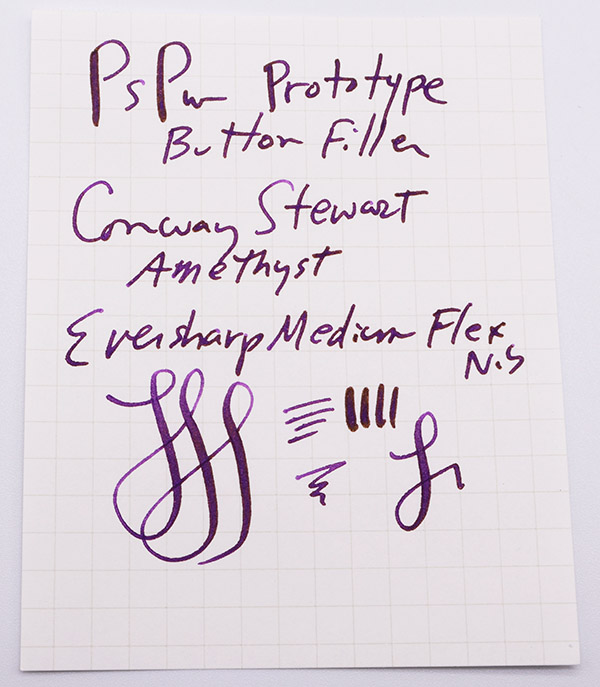 PsPw Prototype
Button Filler
Conway Stewart
Amethyst
Eversharp Medium Flex
N.S